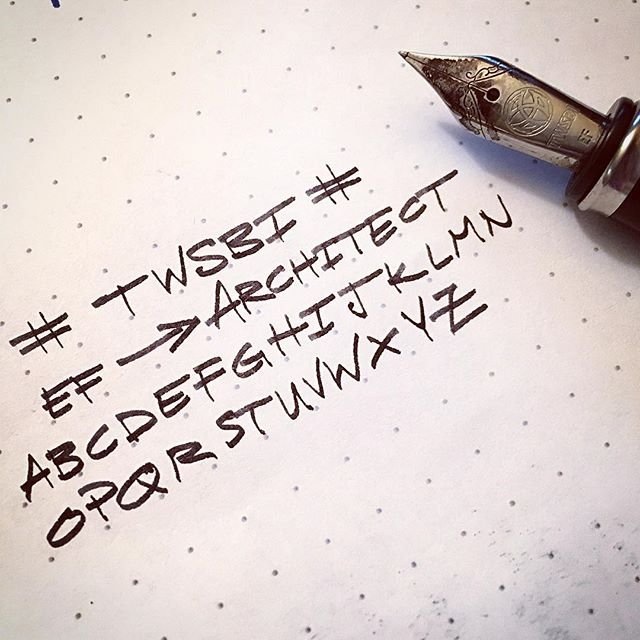 # TWSBI #
EF → ARCHITECT
ABCDEFGHIJKLMN
OPQRSTUVWXYZ
TWSBI
EF